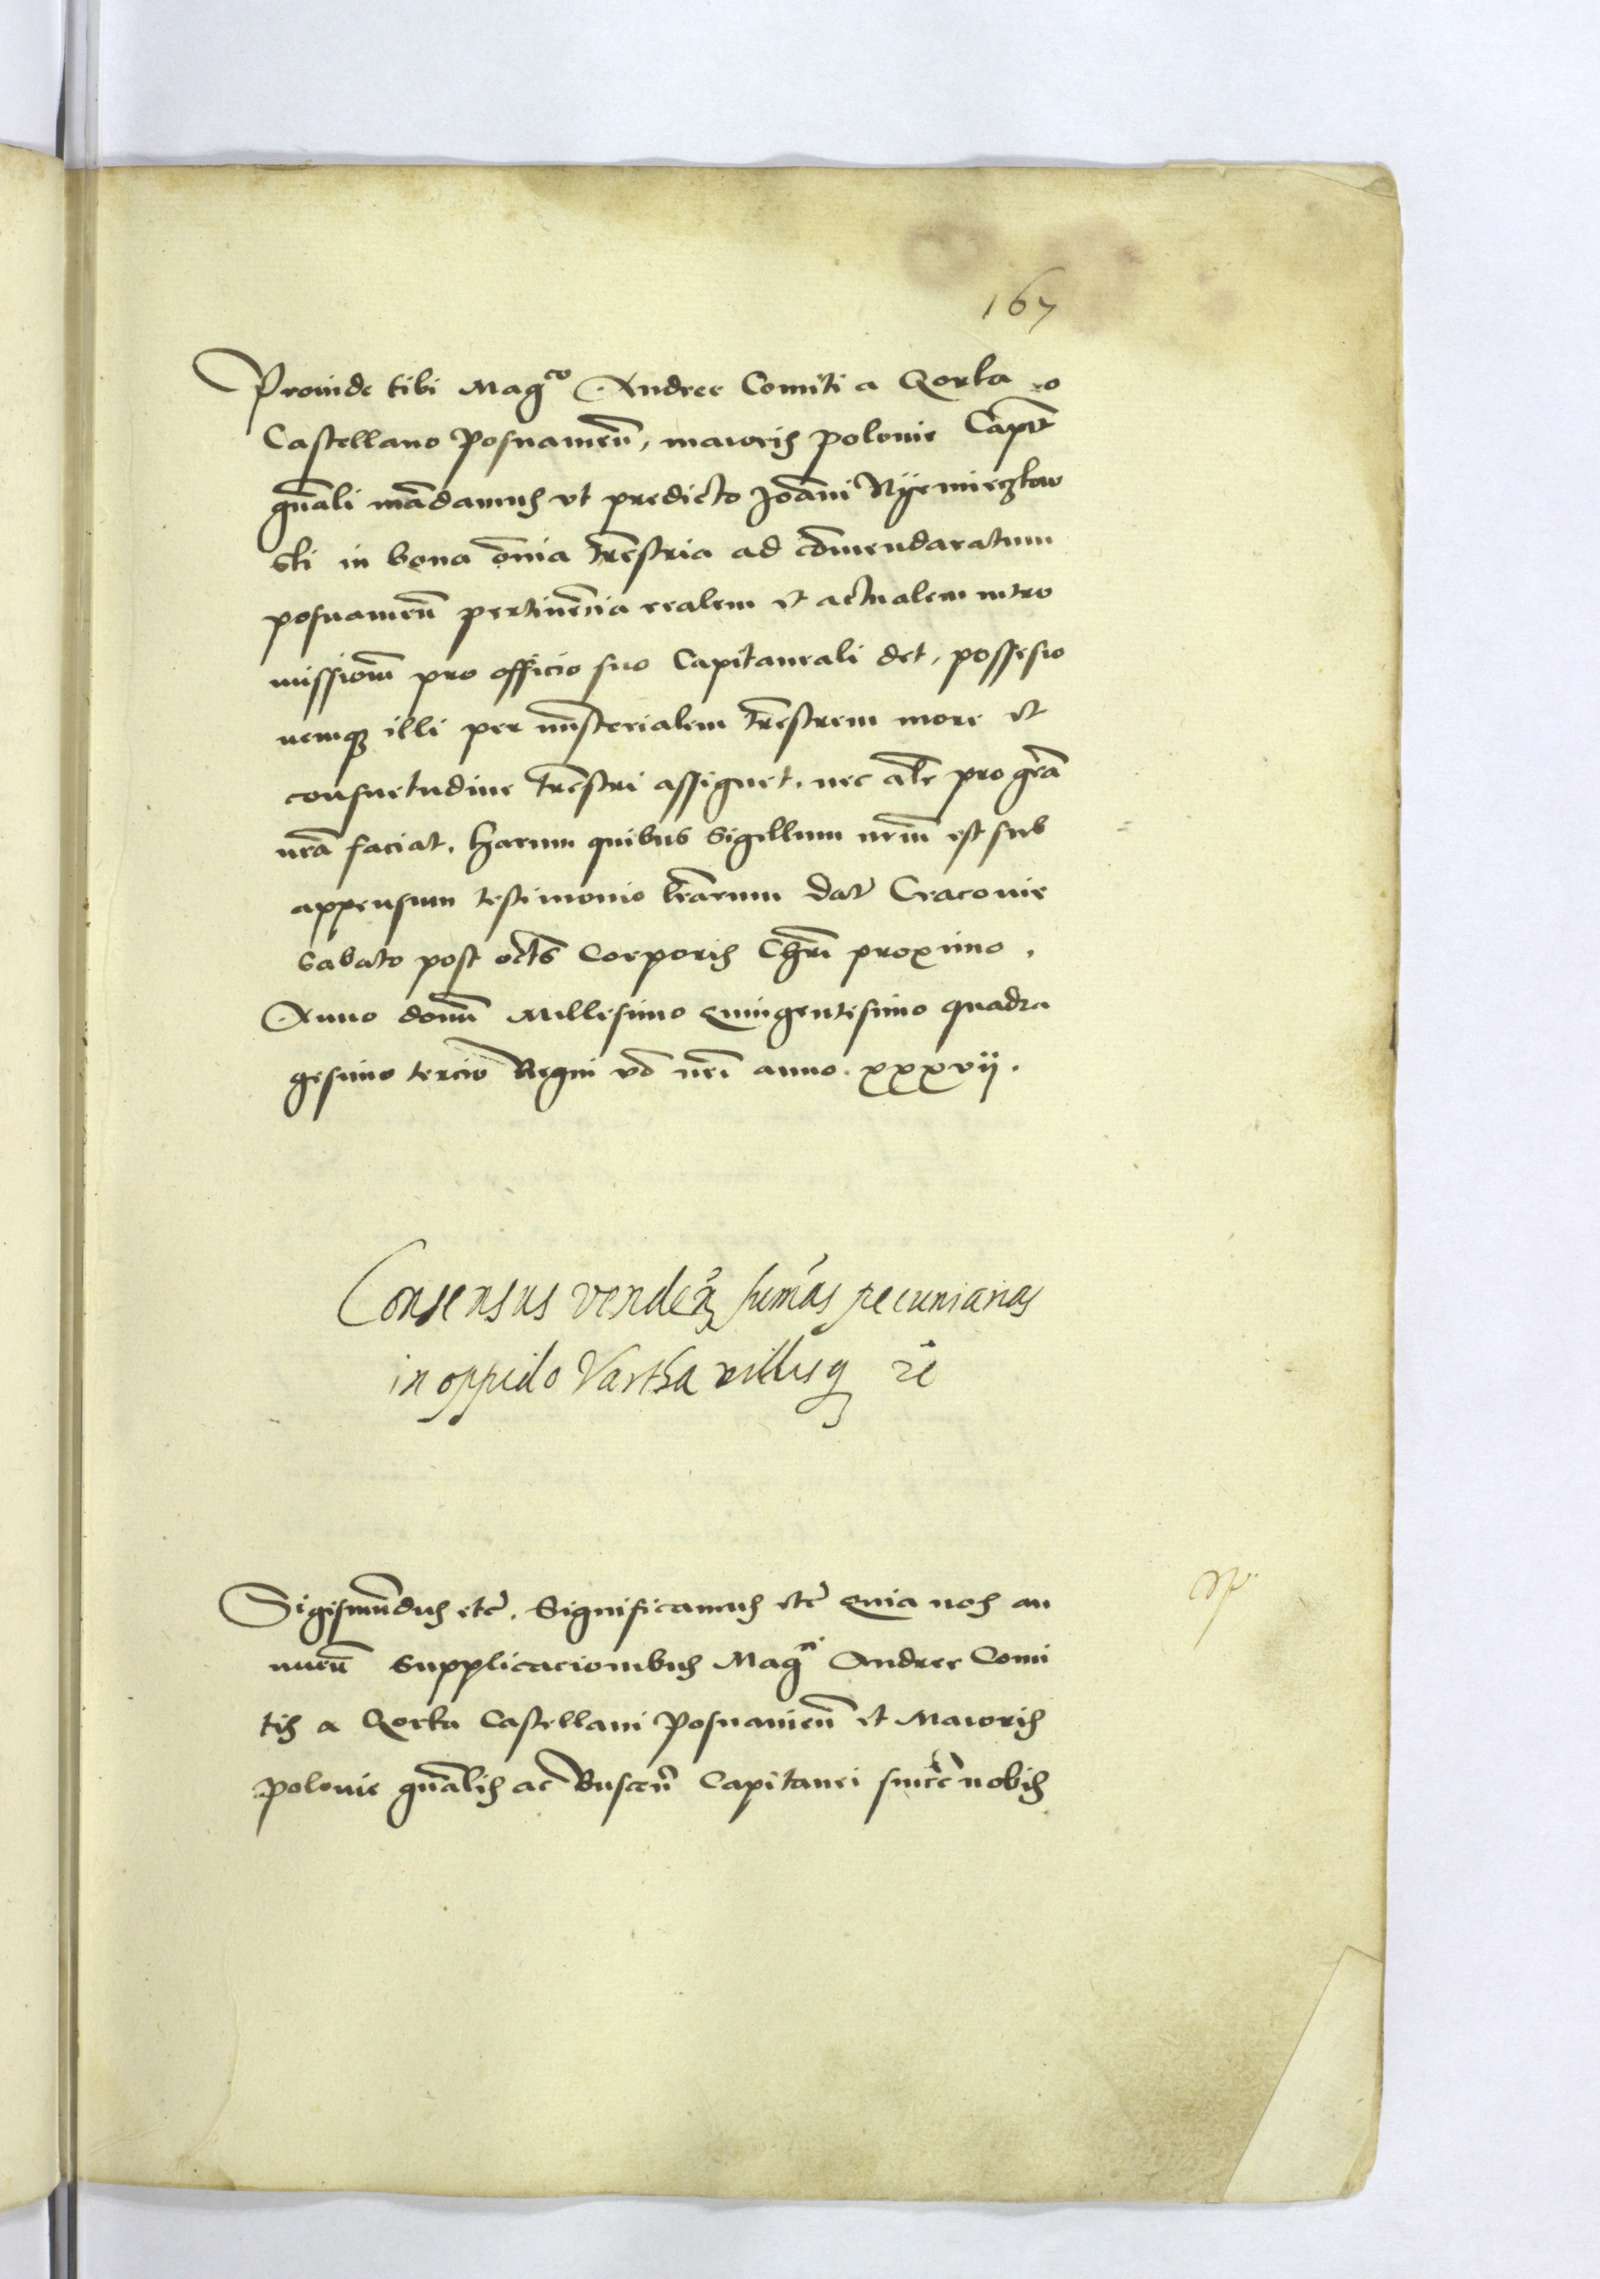 167
Proinde tibi Mag^co Andree Comiti a Gorka
Castellano Posnanieñ, maioris polonie Capit̃
gñali mãdamus vt predicto Joãni Nyemieczkow
ski in bona õnia trẽstria ad cõmendaratum
posnanieñ pertinẽcia realem et actualem intro
missionẽ pro officio suo Capitaneali det, possessio
nemq illi per mĩsterialem trẽstrem more et
consuetudine trẽstri assignet. nec alr̃ pro grã
nrã faciat. Harum quibus Sigillum nrũm est sub
appensum testimonio lrãrum dat̃ Cracovie
Sabato post oct̃s Corporis Chrĩ proximo.
Anno domĩ Millesimo Quingentesimo quadra
gesimo tercio Regni vō nrĩ anno. xxxvij.
Consensus vendeñ sum̃as pecuniarias
in oppido Vartha villisq zc̃
Sigismũdus etc̃. Significamus etc̃ Quia nos an
nueñ Supplicacionibus Mag^ci Andree Comi
tis a Gorka Castellani Posnanieñ et Maioris
Polonie gñalis ac Busceñ Capitanei sincẽ nobis